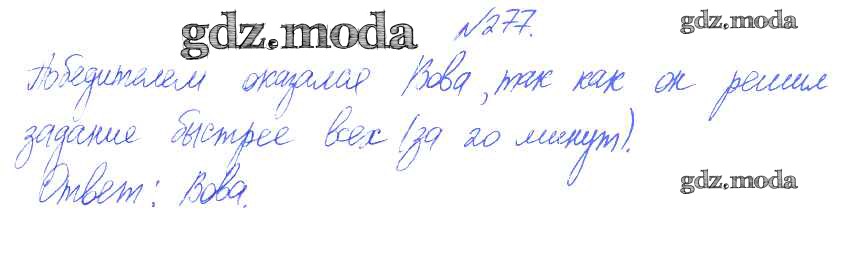 gdz.moda №277. gdz.moda
Победителем оказался Вова, так как он решил
задание быстрее всех (за 20 минут).
Ответ: Вова.
gdz.moda